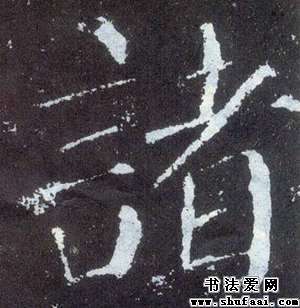 諸
书法爱网
www.shufaai.com